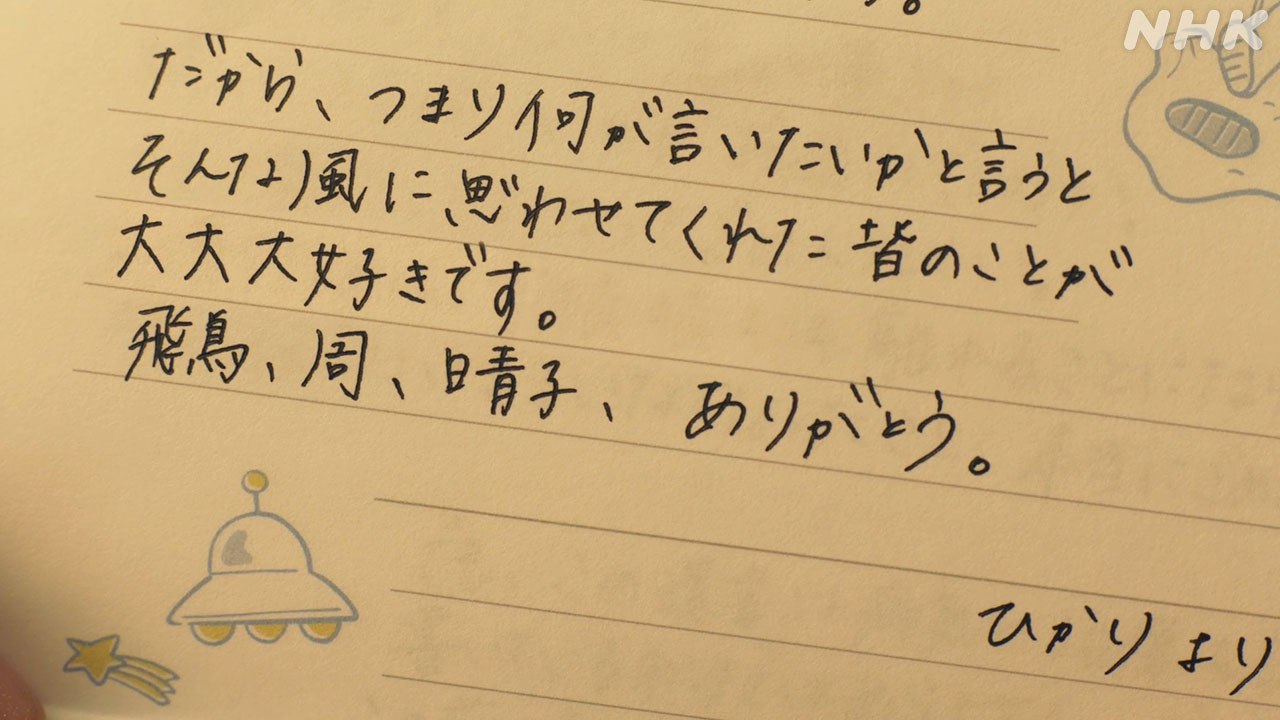 NHK
だから、つまり何が言いたいかと言うと
そんな風に思わせてくれた皆のことが
大大大好きです。
飛鳥、周、晴子、ありがとう。
ひかりより